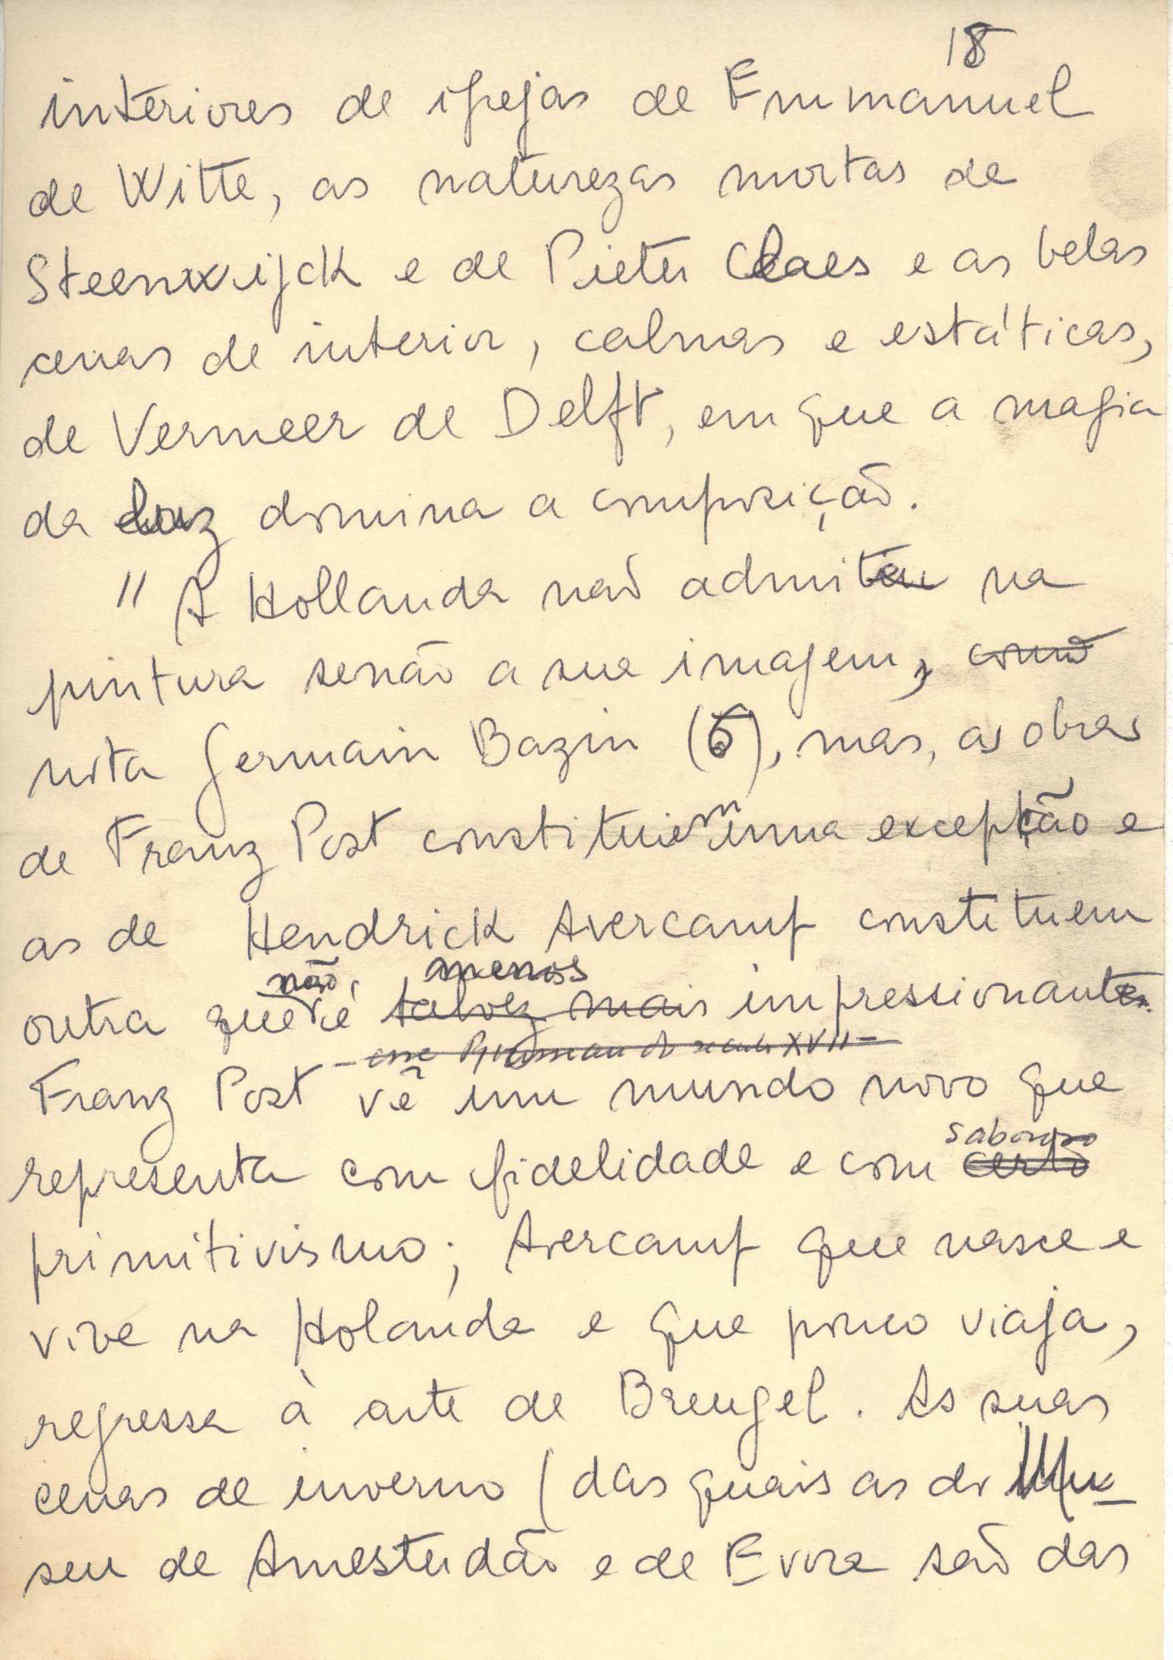 18
interiores de igrejas de Emmanuel
de Witte, as naturezas mortas de
Steenwijck e de Pieter Claes e as belas
cenas de interior, calmas e estáticas,
de Vermeer de Delft, em que a magia
da luz domina a composição.
" A Hollanda não admiteu na
pintura senão a sua imagem, como
nota Germain Bazin (6), mas, as obras
de Franz Post constituem uma excepção e
as de Hendrick Avercamp constituem
não, menos
outra que é talvez mais impressionante.
do seculo XVII -
Franz Post vê um mundo novo que
saboroso
representa com fidelidade e com certo
primitivismo; Avercamp que nasce e
vive na Holanda e que pouco viaja,
regressa à arte de Breugel. As suas
cenas de inverno (das quais as do Mu-
seu de Amesterdão e de Evora são das